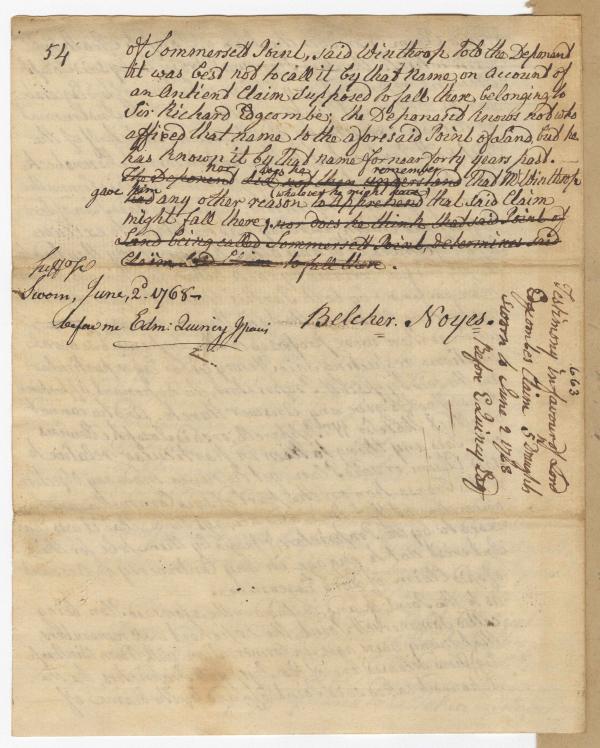 54
of Sommersett Point, said Winthrop told the Deponant
it was best not to call it by that Name, on account of
an Antient Claim supposed to fall there, belonging to
Sir Richard Edgcombe; the Deponant knows not who
affixed that name to the aforesaid Point of Land but he
has known it by that name for near forty years past. —
nor does he remember
The Deponant did not then understand that Mr Winthrop
gave him (whatever he might have)
had any other reason to apprehend that said Claim
might fall there, nor does he think that said Point of
Land being called Sommersett Point, determines said
Claim to fall there.
Sworn, June, 2d. 1768—
before me Edm: Quincy Jpacis
Belcher. Noyes.
663
Testimony in favour of Lord
Edgcombes Claim 5 Draught
Sworn to June 2 1768
Before E Quincy Esq